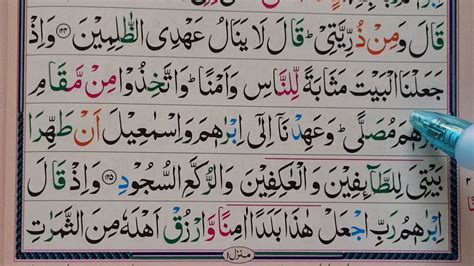 قَالَ وَمِنْ ذُرِّيَّتِیْ ؕ قَالَ لَا یَنَالُ عَهْدِی الظّٰلِمِیْنَ ﴿۱۲۴﴾ وَاِذْ
جَعَلْنَا الْبَیْتَ مَثَابَةً لِّلنَّاسِ وَاَمْنًا ؕ وَاتَّخِذُوْا مِنْ مَّقَامِ
اِبْرٰهٖمَ مُصَلًّی ؕ وَعَهِدْنَاۤ اِلٰۤی اِبْرٰهٖمَ وَاِسْمٰعِیْلَ اَنْ طَهِّرَا
بَیْتِیَ لِلطَّآئِفِیْنَ وَالْعٰكِفِیْنَ وَالرُّكَّعِ السُّجُوْدِ ﴿۱۲۵﴾ وَاِذْ قَالَ
اِبْرٰهٖمُ رَبِّ اجْعَلْ هٰذَا بَلَدًا اٰمِنًا وَّارْزُقْ اَهْلَهٗ مِنَ الثَّمَرٰتِ
منزل ۱